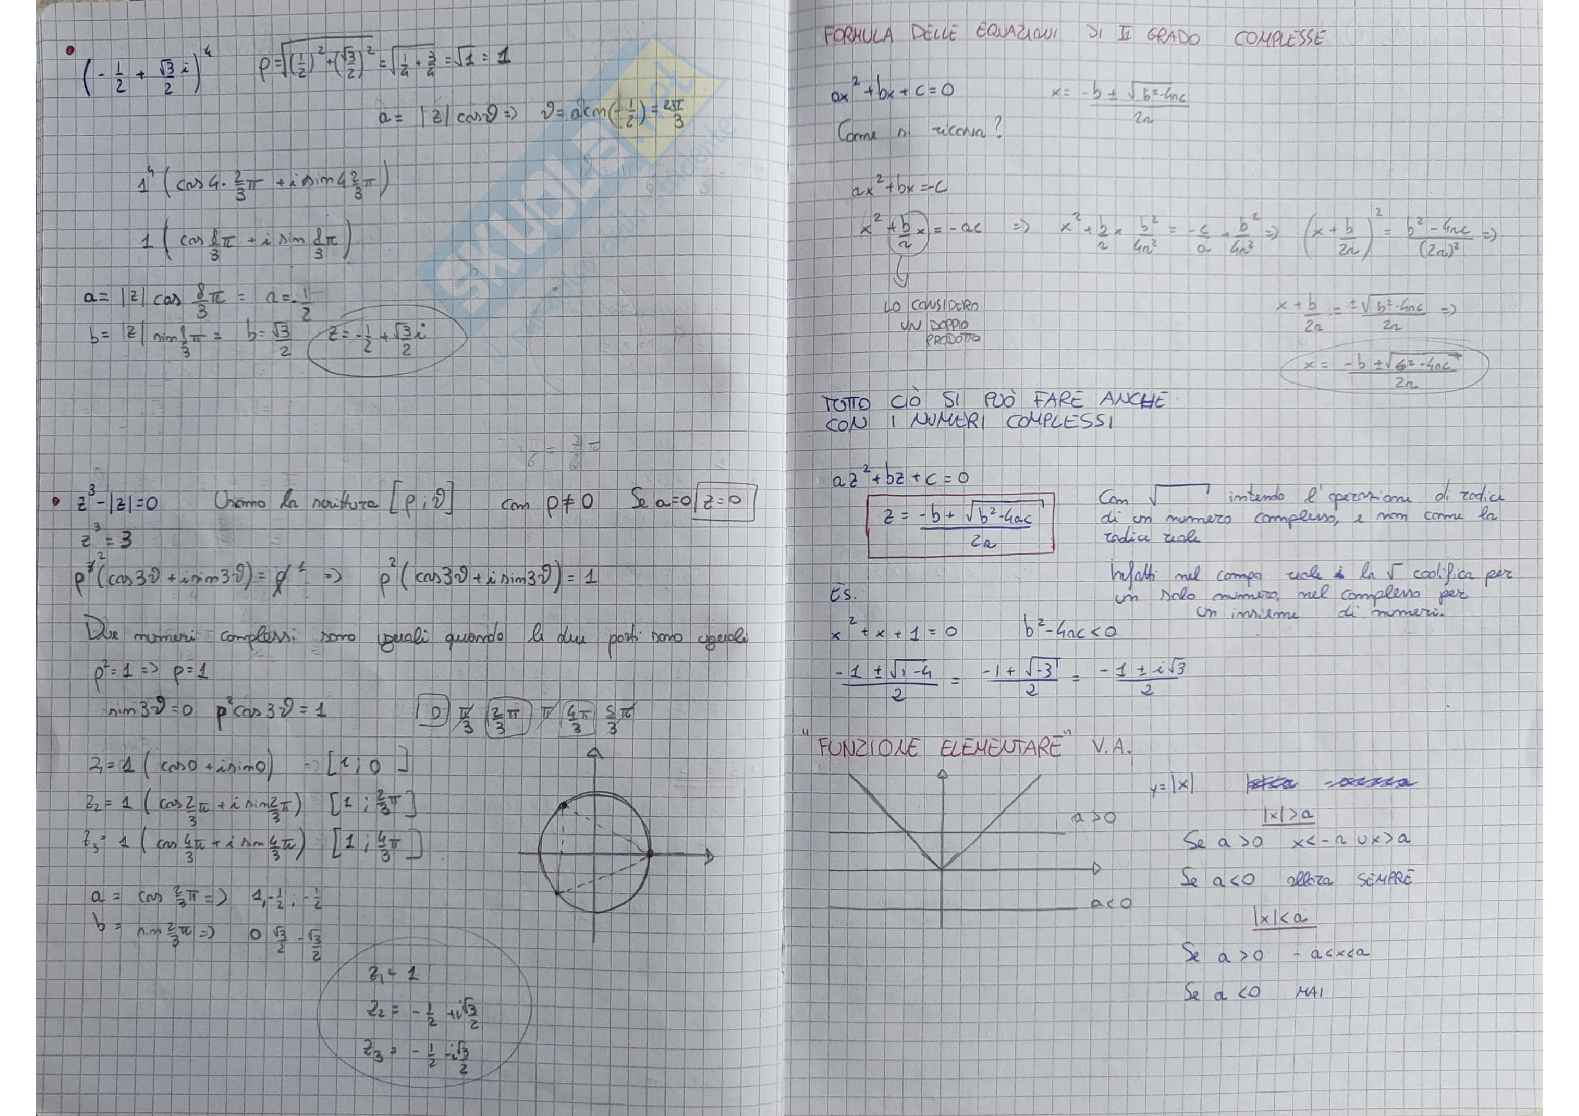 (-1/2 + √3/2 i)^4   ρ=√((1/2)²+(√3/2)²)=√(1/4+3/4)=√1=1
a= |z| cosϑ => ϑ=arcos(-1/2)=2π/3
1^4 (cos4·2/3π + i sin4 2/3π)
1 (cos 8/3π + i sin 8/3π)
a= |z| cos 8/3π = a=-1/2
b= |z| sin 8/3π = b=√3/2   z=-1/2+√3/2 i
z³-|z|=0   Usiamo la scrittura [ρ;ϑ]   con ρ≠0   Se a=0 z=0
z³=3
(cos3ϑ+i sin3ϑ)= => ρ²(cos3ϑ+i sin3ϑ)=1
Due numeri complessi sono uguali quando le due parti sono uguali
ρ²=1 => ρ=1
sin3ϑ=0   ρ²cos3ϑ=1   0 π/3 2/3π π 4/3π 5/3π
z₁=1 (cos0+isin0) => [1;0]
z₂=1 (cos2/3π+i sin2/3π)   [1;2/3π]
z₃= 1 (cos4/3π+i sin4/3π)   [1;4/3π]
a= cos 2/3π => 1,-1/2,-1/2
b= sin2/3π => 0 √3/2 -√3/2
z₁= 1
z₂= -1/2 +i√3/2
z₃= -1/2 -i√3/2
FORMULA DELLE EQUAZIONI DI II GRADO COMPLESSE
ax²+bx+c=0   x= -b±√b²-4ac / 2a
Come si ricava?
ax²+bx=-c
x²+b/a x=-ac => x²+b/a x b²/4a² = -c/a + b²/4a² => (x+b/2a)² = b²-4ac/(2a)² =>
LO CONSIDERO   x+b/2a = ±√b²-4ac/2a =>
UN DOPPIO
PRODOTTO
x= -b±√b²-4ac / 2a
TUTTO CIÒ SI PUÒ FARE ANCHE
CON I NUMERI COMPLESSI
az²+bz+c=0
z= -b+√b²-4ac / 2a
Con √ intendo l'operazione di radice
di un numero complesso, e non come la
radice reale
Infatti nel campo reale la √ codifica per
un solo numero, nel complesso per
un insieme di numeri.
Es.
x²+x+1=0   b²-4ac<0
-1±√1-4 / 2 = -1+√-3 / 2 = -1±i√3 / 2
"FUNZIONE ELEMENTARE" V.A.
y=|x|
a>0
a<0
|x|>a
Se a>0 x<-a ∪ x>a
Se a<0 allora SEMPRE
|x|<a
Se a>0 -a<x<a
Se a<0 MAI